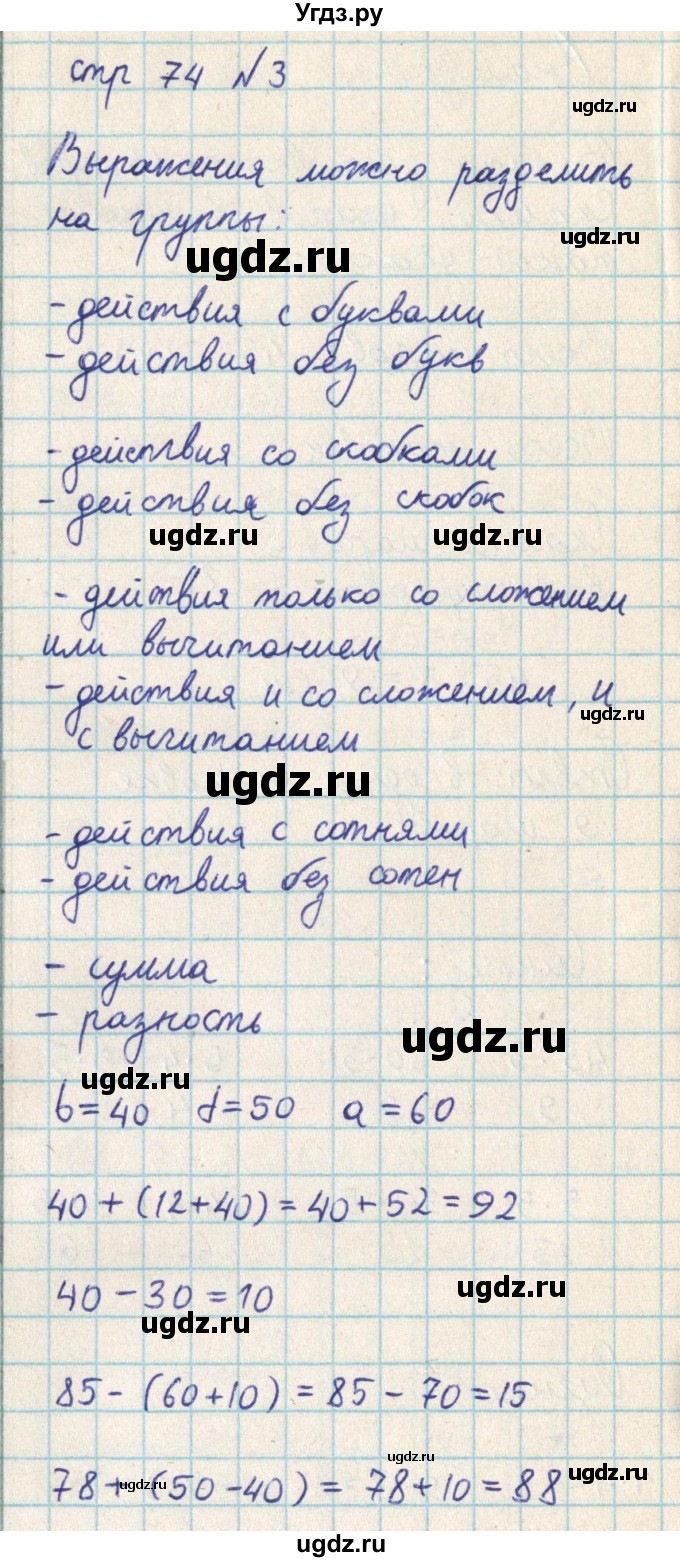 Угдз.ру
стр 74 №3
ugdz.ru
Выражения можно разделить
на группы:
ugdz.ru
ugdz.ru
- действия с буквами
- действия без букв
- действия со скобками
- действия без скобок
ugdz.ru ugdz.ru
- действия только со сложением
или вычитанием
- действия и со сложением, и
ugdz.ru
с вычитанием
ugdz.ru
- действия с сотнями
- действия без сотен
- сумма
- разность
ugdz.ru
ugdz.ru
b=40 d=50 a=60
40+(12+40)=40+52=92
ugdz.ru
40-30=10
ugdz.ru
85-(60+10)=85-70=15
ugdz.ru
ugdz.ru
ugdz.ru
78+(50-40)=78+10=88
ugdz.ru